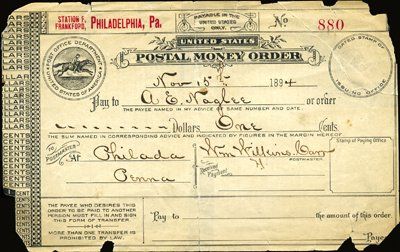 STATION F, FRANKFORD, PHILADELPHIA, Pa.
PAYABLE IN THE UNITED STATES ONLY
No. 880
UNITED STATES
POSTAL MONEY ORDER
POST OFFICE DEPARTMENT
UNITED STATES OF AMERICA
DATED STAMP OF ISSUING OFFICE
Nov 15th 1894
Pay to A E Naglee or order
THE PAYEE NAMED IN MY ADVICE OF SAME NUMBER AND DATE.
Dollars One Cents.
THE SUM NAMED IN CORRESPONDING ADVICE AND INDICATED BY FIGURES IN THE MARGIN HEREOF.
To POSTMASTER AT Philada
Penna
Wm Williams
POSTMASTER.
Stamp of Paying Office
Received Payment
THE PAYEE WHO DESIRES THIS
ORDER TO BE PAID TO ANOTHER
PERSON MUST FILL IN AND SIGN
THIS FORM OF TRANSFER
MORE THAN ONE TRANSFER IS
PROHIBITED BY LAW.
Pay to the amount of this order.
Payee.